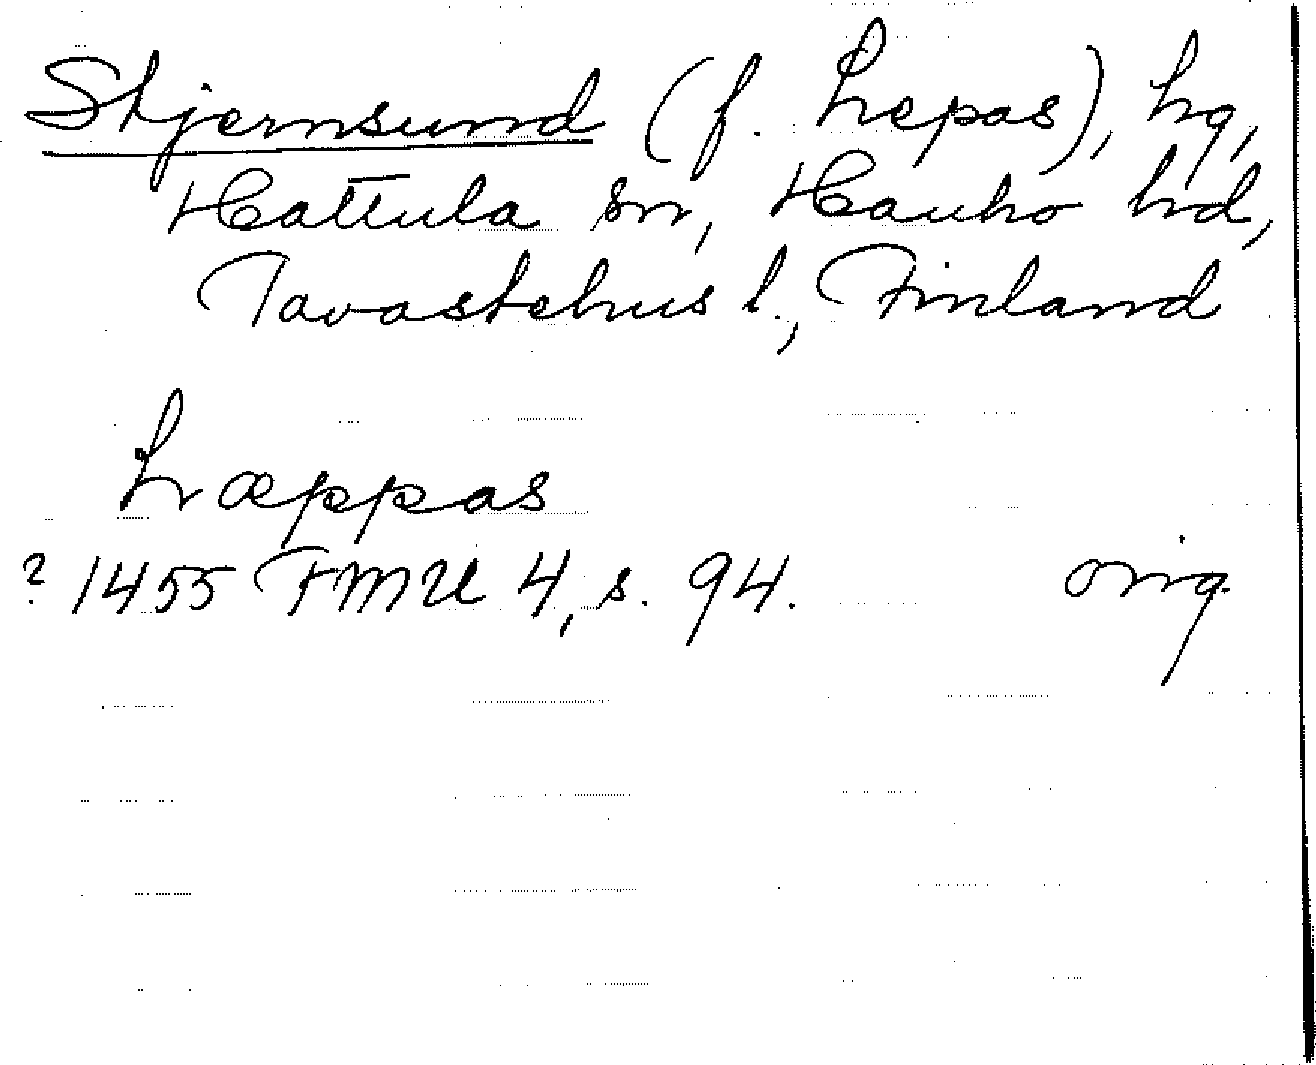 Stjernsund (f. Lepas), hg,
Hattula sn, Hauho hd,
Tavastehus l., Finland
Læppas
? 1455 FMU 4, s. 94. orig.